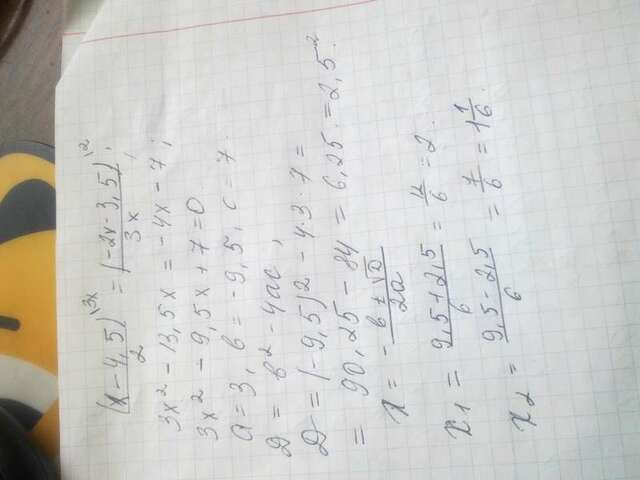 (x-4,5)/2 \3x = (-2x-3,5)/3x \2;
3x² - 13,5x = -4x - 7;
3x² - 9,5x + 7 = 0
a = 3, b = -9,5, c = 7.
D = b² - 4ac;
D = (-9,5)² - 4·3·7 =
= 90,25 - 84 = 6,25 = 2,5².
x = -(b ± √D)/2a
x₁ = (9,5+2,5)/6 = 12/6 = 2.
x₂ = (9,5-2,5)/6 = 7/6 = 1 1/6.